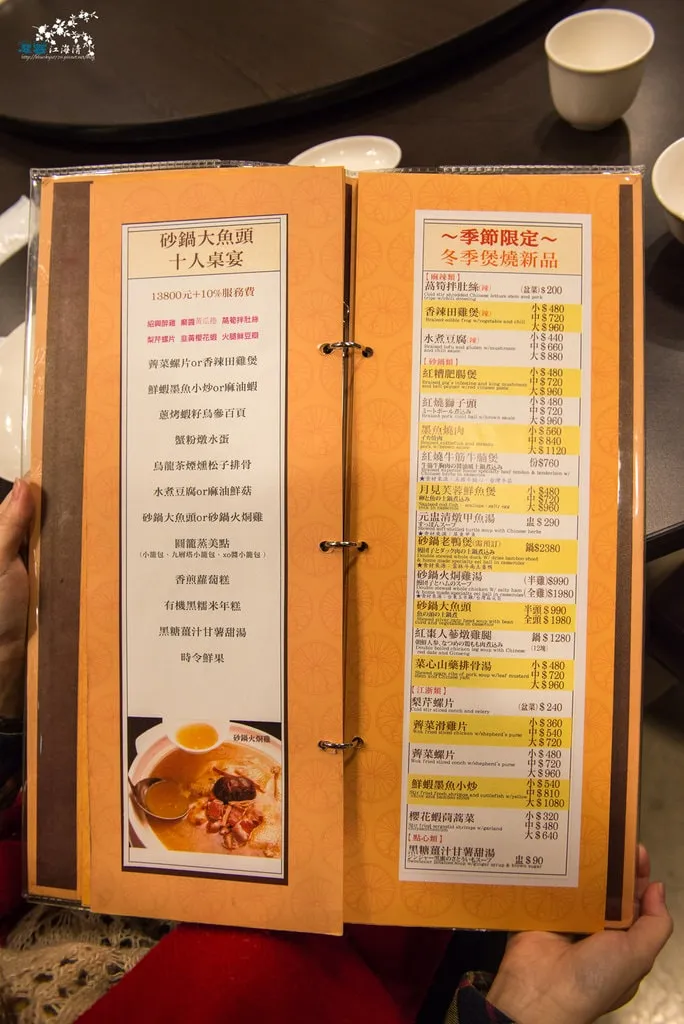 江海清
砂鍋大魚頭
十人桌宴
13800元+10%服務費
紹興醉雞 萵筍拌肚絲
梨芹螺片 韭黃櫻花蝦
薺菜螺片or香辣田雞煲
鮮蝦墨魚小炒or麻油蝦
蔥烤蝦籽烏參百頁
蟹粉燉水蛋
烏龍茶煙燻松子排骨
水煮豆腐or麻油鮮菇
砂鍋大魚頭or砂鍋火焗雞
圓籠蒸美點
(小籠包、九層塔小籠包、xo醬小籠包)
香煎蘿蔔糕
有機黑糯米年糕
黑糖薑汁甘薯甜湯
時令鮮果
砂鍋火焗雞
～季節限定～
冬季煲燒新品
【麻辣類】
萵筍拌肚絲(辣) (盆菜)$200
香辣田雞煲(辣) 小$480
中$720
大$960
水煮豆腐(辣) 小$440
中$660
大$880
【砂鍋類】
紅糟肥腸煲 小$480
中$720
大$960
紅燒獅子頭 小$480
中$720
大$960
墨魚燒肉 小$560
中$840
大$1120
紅燒牛筋牛腩煲 份$760
月見芙蓉鮮魚煲 小$480
中$720
大$960
元盅清燉甲魚湯 盅$290
砂鍋老鴨煲(需預訂) 鍋$2380
砂鍋火焗雞湯 (半雞)$990
(全雞)$1980
砂鍋大魚頭 半頭$990
全頭$1980
紅棗人蔘燉雞腿 鍋$1280
菜心山藥排骨湯 小$480
中$720
大$960
【江浙類】
梨芹螺片 (盆菜)$240
Cold stir sliced conch and celery
薺菜滑雞片 小$360
中$540
大$720
薺菜螺片 小$480
中$720
大$960
鮮蝦墨魚小炒 小$540
中$810
大$1080
櫻花蝦茼蒿菜 小$320
中$480
大$640
【點心類】
黑糖薑汁甘薯甜湯 盅$90